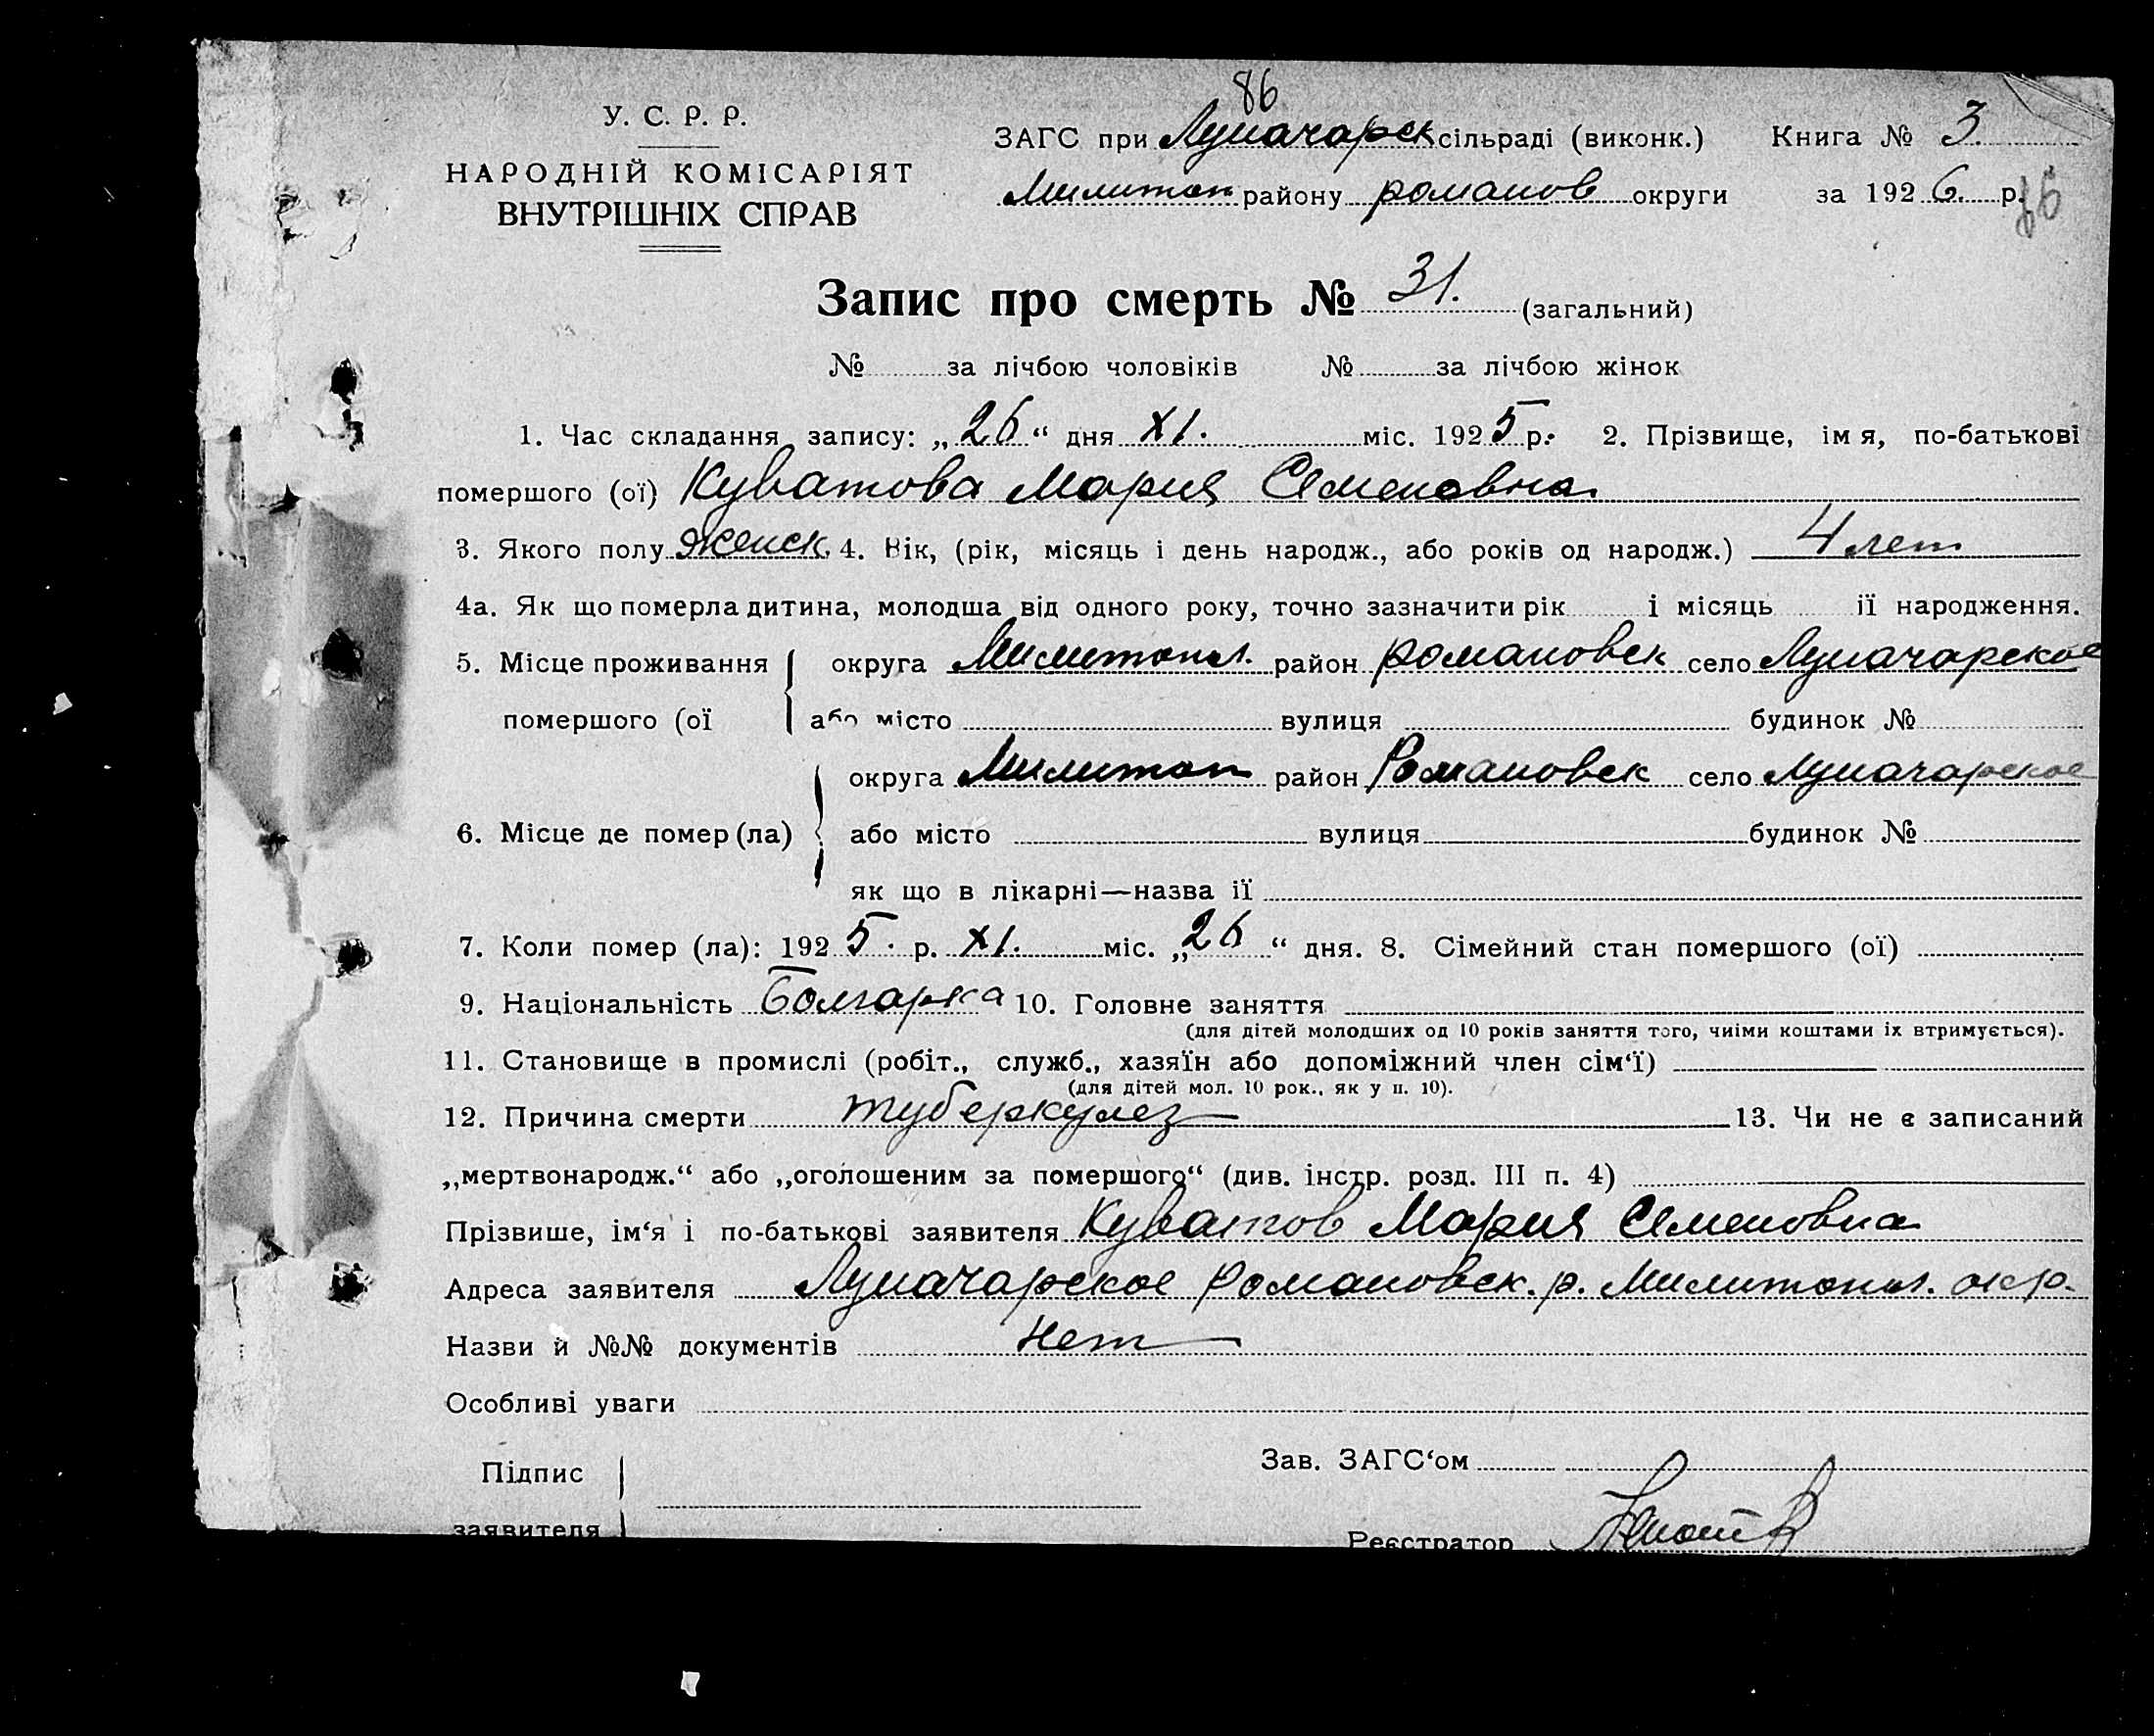 86
У. С. Р. Р.
НАРОДНІЙ КОМІСАРІЯТ
ВНУТРІШНІХ СПРАВ
ЗАГС при Луначарск сільраді (виконк.) Книга № 3.
Милитоп району романов округи за 1926. р.
86
Запис про смерть № 31. (загальний)
№ за лічбою чоловіків № за лічбою жінок
1. Час складання запису: „26“ дня XI. міс. 1925 р. 2. Прізвище, імя, по-батькові
помершого (ої) Куватова Мария Семеновна
3. Якого полу женск. 4. Вік, (рік, місяць і день народж., або років од народж.) 4 лет
4а. Як що померла дитина, молодша від одного року, точно зазначити рік і місяць її народження.
5. Місце проживання округа Милитопол. район романовск село Луначарское
помершого (ої або місто вулиця будинок №
округа Милитоп район Романовск село Луначарское
6. Місце де помер (ла) або місто вулиця будинок №
як що в лікарні—назва її
7. Коли помер (ла): 1925. р. XI. міс. „26“ дня. 8. Сімейний стан помершого (ої)
9. Національність Болгарка 10. Головне заняття
(для дітей молодших од 10 років заняття того, чиїми коштами їх втримується).
11. Становище в промислі (робіт., служб., хазяїн або допоміжний член сім‘ї)
(для дітей мол. 10 рок., як у п. 10).
12. Причина смерти туберкулез 13. Чи не є записаний
„мертвонародж.“ або „оголошеним за помершого“ (див. інстр. розд. III п. 4)
Прізвише, ім‘я і по-батькові заявителя Куватов Мария Семеновна
Адреса заявителя Луначарское романовск. р. Милитопол. окр.
Назви й №№ документів нет
Особливі уваги
Підпис
заявителя
Зав. ЗАГС‘ом
Реєстратор